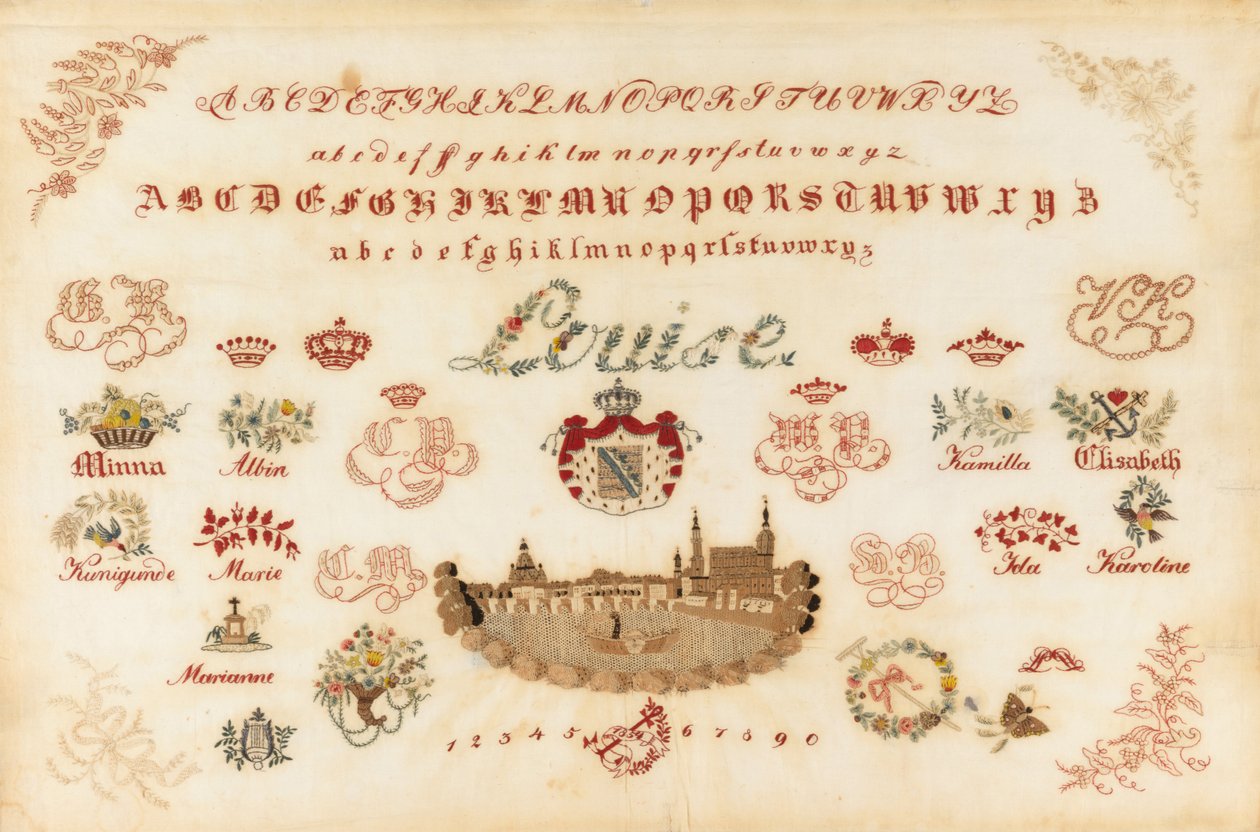 A B C D E F G H I K L M N O P Q R S T U V W X Y Z
a b c d e f ff g h i k l m n o p q r ſ s t u v w x y z
A B C D E F G H I K L M N O P Q R S T U V W X Y Z
a b c d e f g h i k l m n o p q r ſ s t u v w x y z
V. K.
Louise
C. P. W. P.
Minna Albin Kamilla Elisabeth
C. M.
Kunigunde Marie Ida Karoline
Marianne
1 2 3 4 5 6 7 8 9 0